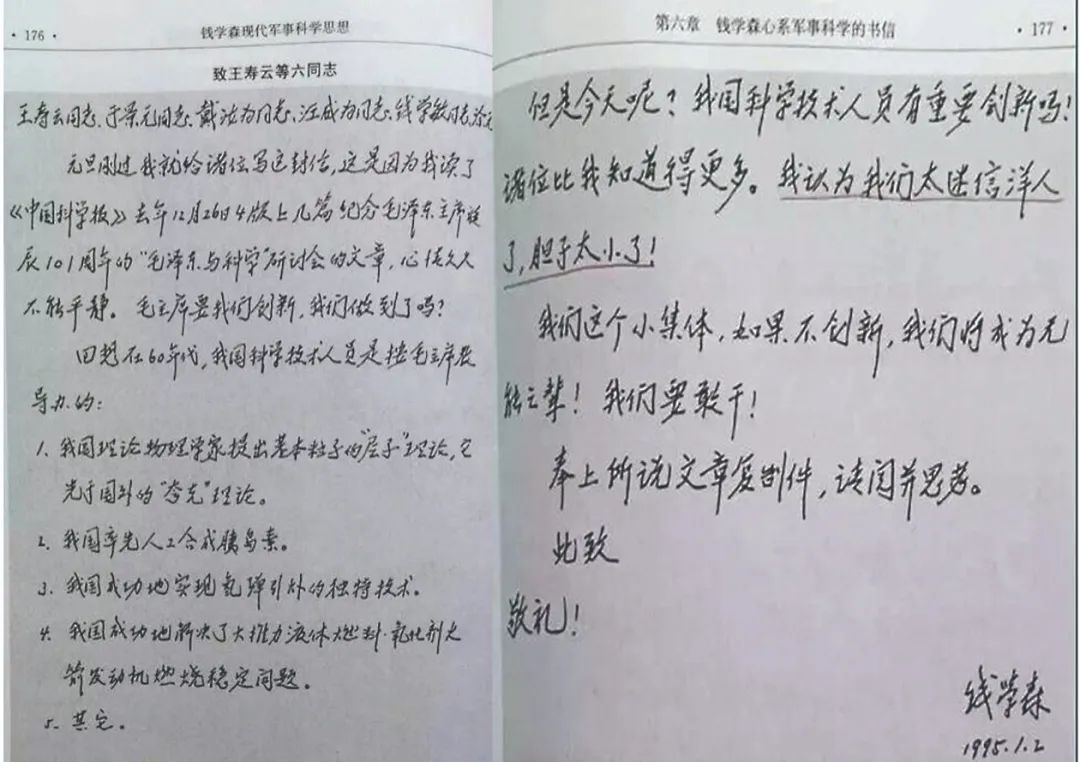 · 176 ·
钱学森现代军事科学思想
致王寿云等六同志
王寿云同志、于景元同志、戴汝为同志、汪成为同志、钱学敏同志、涂元
元旦刚过我就给诸位写这封信,这是因为我读了
《中国科学报》去年12月26日4版上几篇纪念毛泽东主席诞
辰101周年的“毛泽东与科学”研讨会的文章,心情久久
不能平静。毛主席要我们创新,我们做到了吗?
回想在60年代,我国科学技术人员是按毛主席教
导办的:
1. 我国理论物理学家提出基本粒子的“层子”理论,它
先于国外的“夸克”理论。
2. 我国率先人工合成胰岛素。
3. 我国成功地实现氢弹引爆的独特技术。
4. 我国成功地解决了大推力液体燃料·氧化剂火
箭发动机燃烧稳定问题。
5. 其它。
第六章 钱学森心系军事科学的书信
· 177 ·
但是今天呢?我国科学技术人员有重要创新吗!
诸位比我知道得更多。我认为我们太迷信洋人
了,胆子太小了!
我们这个小集体,如果不创新,我们将成为无
能之辈!我们要敢干!
奉上所说文章复制件,请阅并思考。
此致
敬礼!
钱学森
1995.1.2